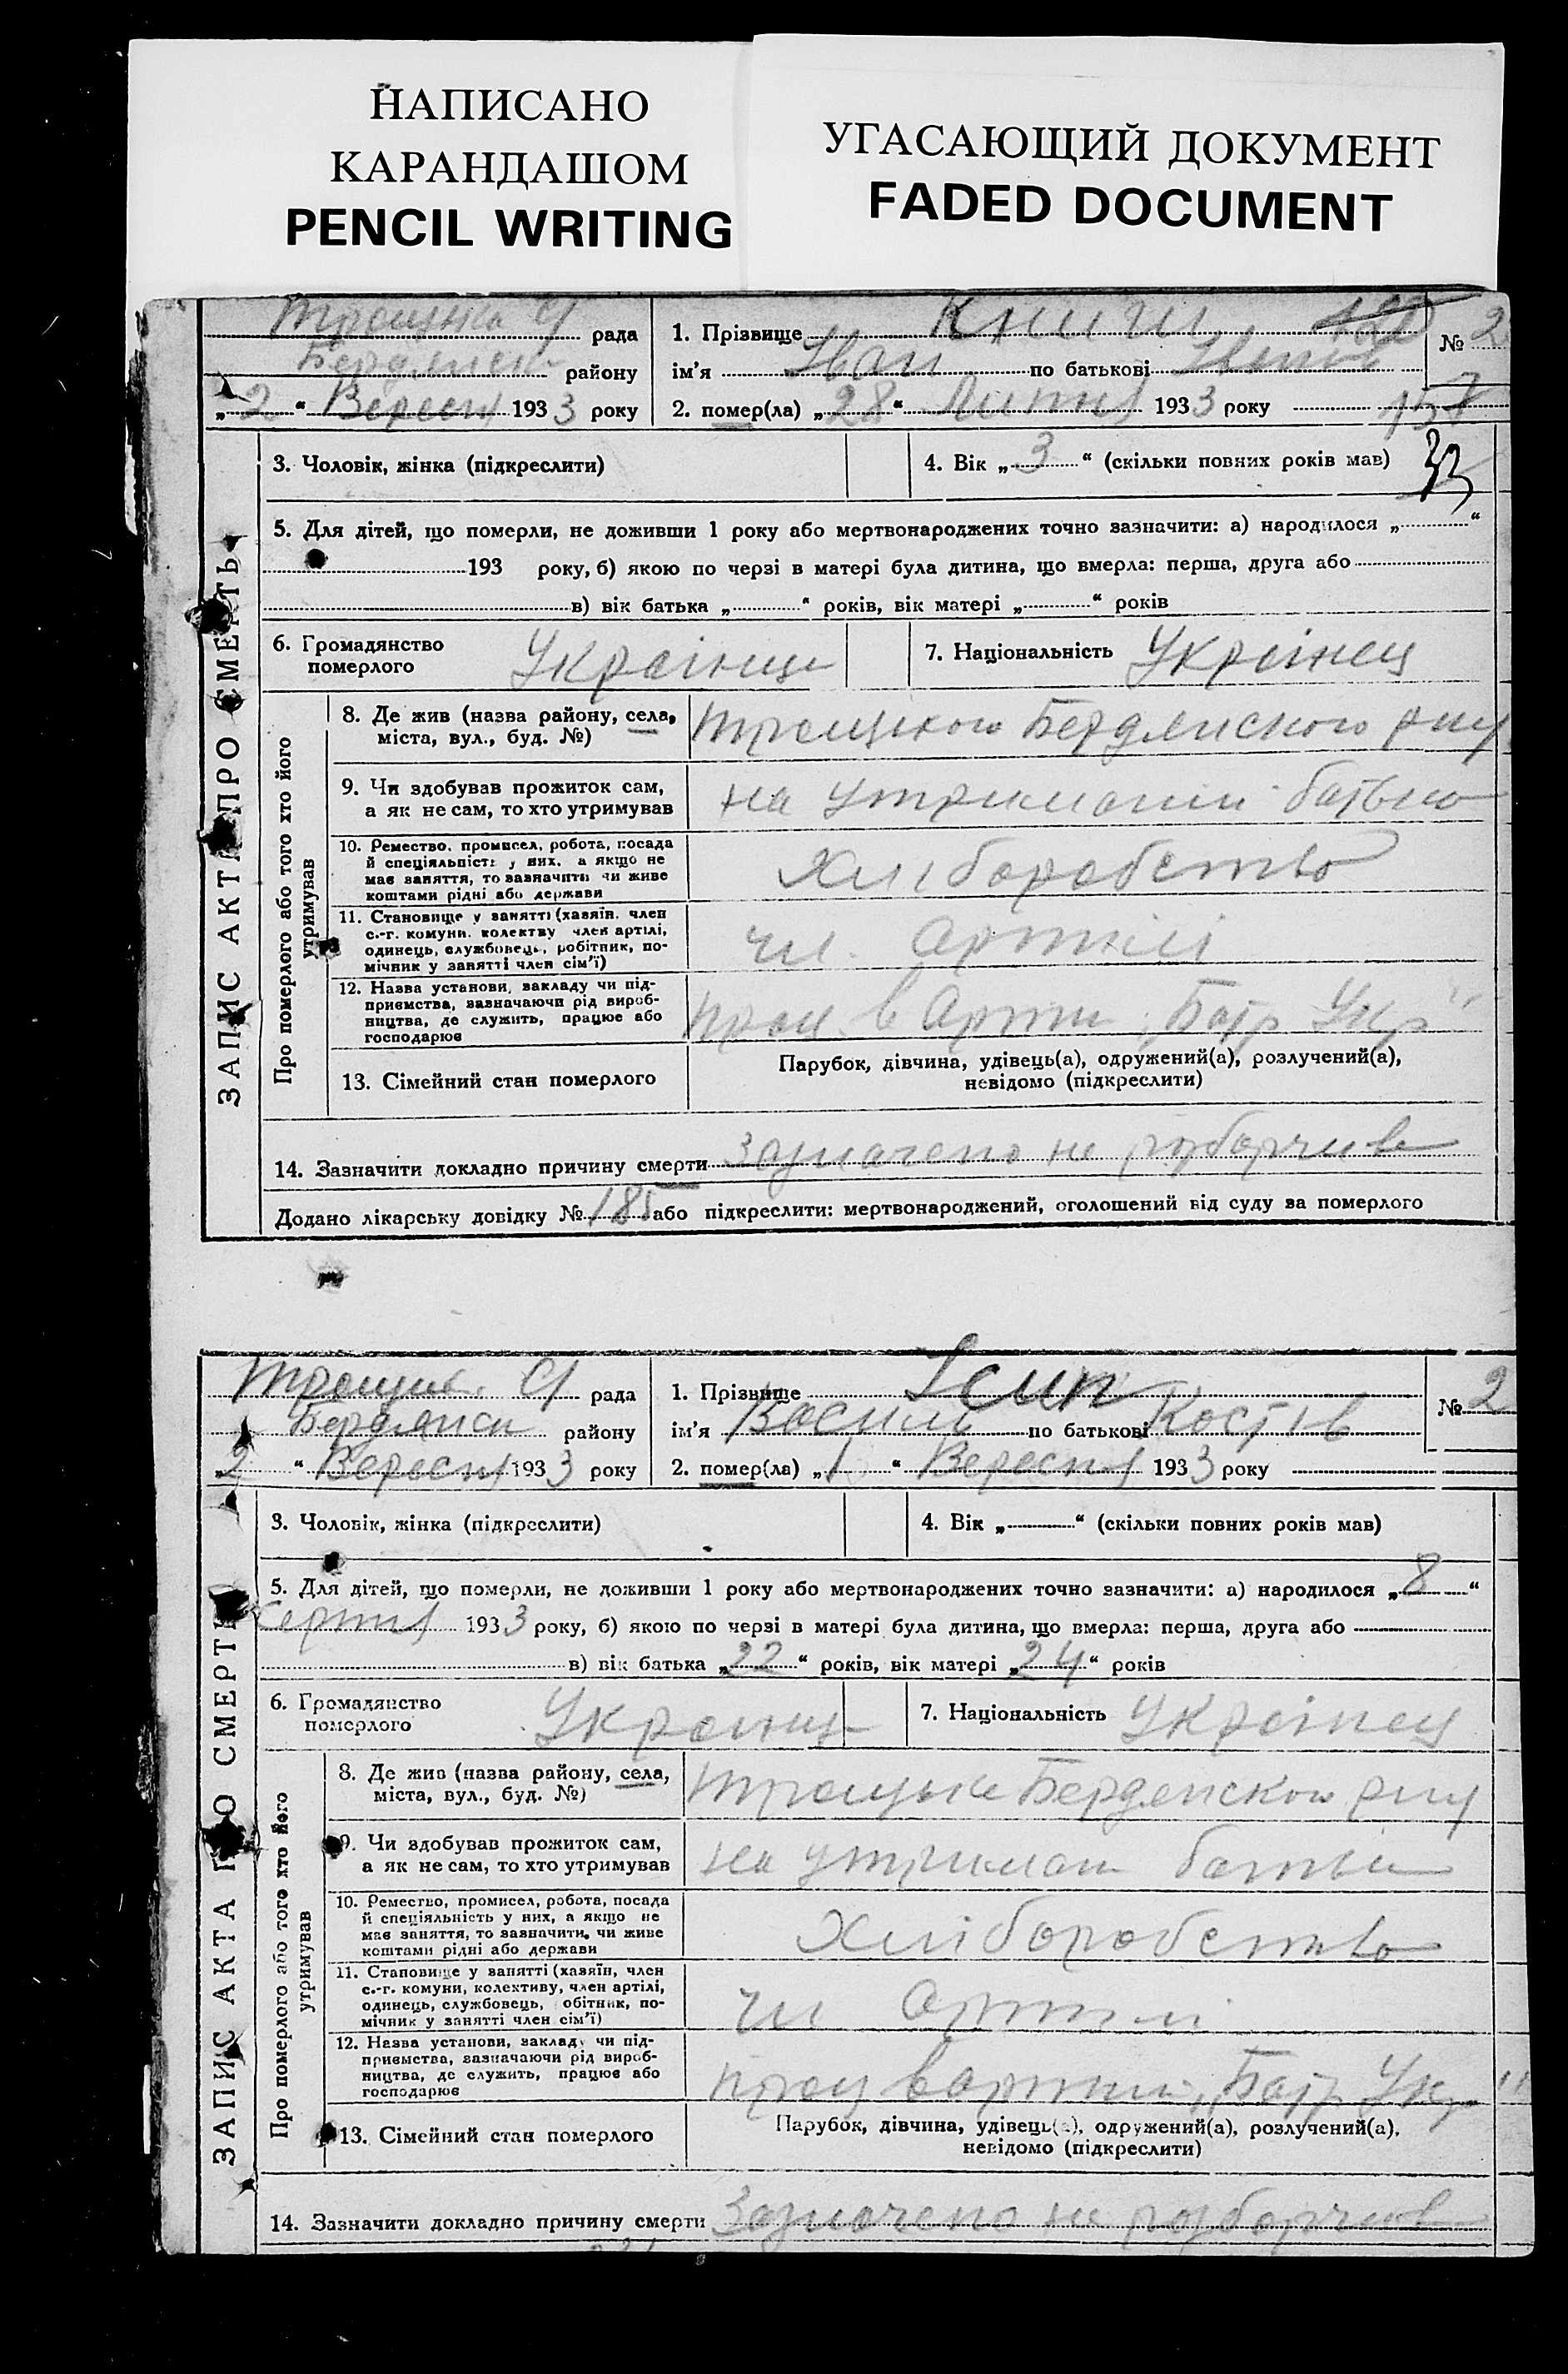 НАПИСАНО
КАРАНДАШОМ
PENCIL WRITING
УГАСАЮЩИЙ ДОКУМЕНТ
FADED DOCUMENT
рада
району
„2“ Вересн 1933 року
1. Прізвище Книги
№ 2
ім'я Іван по батькові
2. помер(ла) „28“ 1933 року
3. Чоловік, жінка (підкреслити)
4. Вік „3“ (скільки повних років мав)
5. Для дітей, що померли, не доживши 1 року або мертвонароджених точно зазначити: а) народилося „ “
193 року, б) якою по черзі в матері була дитина, що вмерла: перша, друга або
в) вік батька „ “ років, вік матері „ “ років
6. Громадянство
померлого
7. Національність Українец
ЗАПИС АКТА ПРО СМЕРТЬ
Про померлого або того хто його
утримував
8. Де жив (назва району, села,
міста, вул., буд. №)
Троицького Бердянского
9. Чи здобував прожиток сам,
а як не сам, то хто утримував
на утримании батько
10. Ремество, промисел, робота, посада
й спеціяльність у них, а якщо не
має заняття, то зазначити чи живе
коштами рідні або держави
Хліборобство
11. Становище у занятті (хазяїн, член
с.-г. комуни, колективу член артілі,
одинець, службовець, робітник, по-
мічник у занятті член сім'ї)
чл. Артілі
12. Назва установи, закладу чи під-
приємства, зазначаючи рід вироб-
ництва, де служить, працює або
господарює
13. Сімейний стан померлого
Парубок, дівчина, удівець(а), одружений(а), розлучений(а),
невідомо (підкреслити)
14. Зазначити докладно причину смерти Зазначено не розборчиво
Додано лікарську довідку № 185 або підкреслити: мертвонароджений, оголошений від суду за померлого
рада
Бердянск району
„2“ Вересня 1933 року
1. Прізвище
№ 2
ім'я Василь по батькові Костів
2. помер(ла) „1“ Вересня 1933 року
3. Чоловік, жінка (підкреслити)
4. Вік „ “ (скільки повних років мав)
5. Для дітей, що померли, не доживши 1 року або мертвонароджених точно зазначити: а) народилося „8“
Серпня 1933 року, б) якою по черзі в матері була дитина, що вмерла: перша, друга або
в) вік батька „22“ років, вік матері „24“ років
6. Громадянство
померлого
7. Національність Українец
ЗАПИС АКТА ПРО СМЕРТЬ
Про померлого або того хто його
утримував
8. Де жив (назва району, села,
міста, вул., буд. №)
Троицьке Бердянского
9. Чи здобував прожиток сам,
а як не сам, то хто утримував
на утриман батьки
10. Ремество, промисел, робота, посада
й спеціяльність у них, а якщо не
має заняття, то зазначити, чи живе
коштами рідні або держави
Хліборобство
11. Становище у занятті (хазяїн, член
с.-г. комуни, колективу, член артілі,
одинець, службовець, робітник, по-
мічник у занятті член сім'ї)
чл Артілі
12. Назва установи, закладу чи під-
приємства, зазначаючи рід вироб-
ництва, де служить, працює або
господарює
13. Сімейний стан померлого
Парубок, дівчина, удівець(а), одружений(а), розлучений(а),
невідомо (підкреслити)
14. Зазначити докладно причину смерти Зазначено не розборчиво